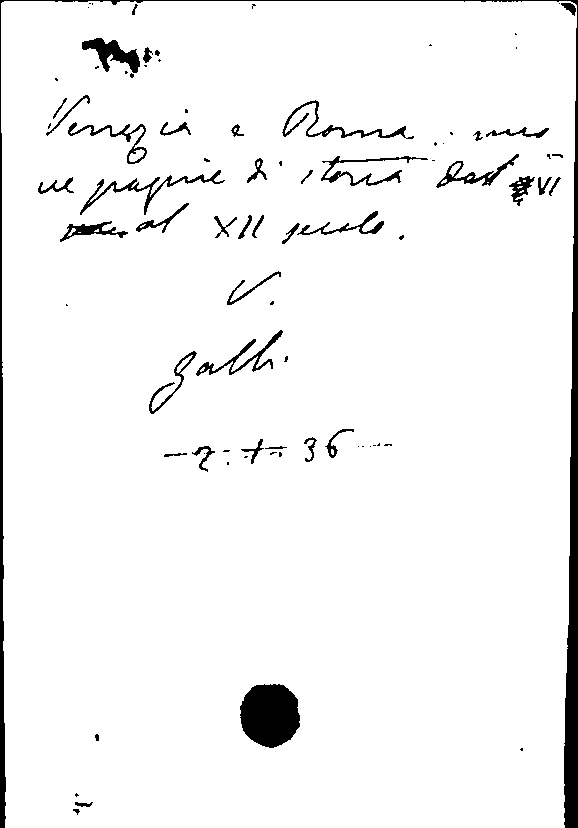 Venezia e Roma. nuo
ve pagine di storia dal VI
al XII secolo.
V.
Galli.
- 2. t. 36 -